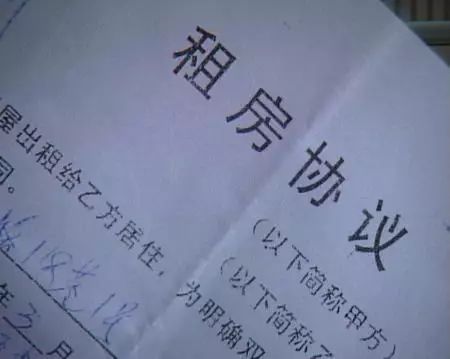 租房协议
（以下简称甲方）
（以下简称乙
为明确双
屋出租给乙方居住，
同。
年 月